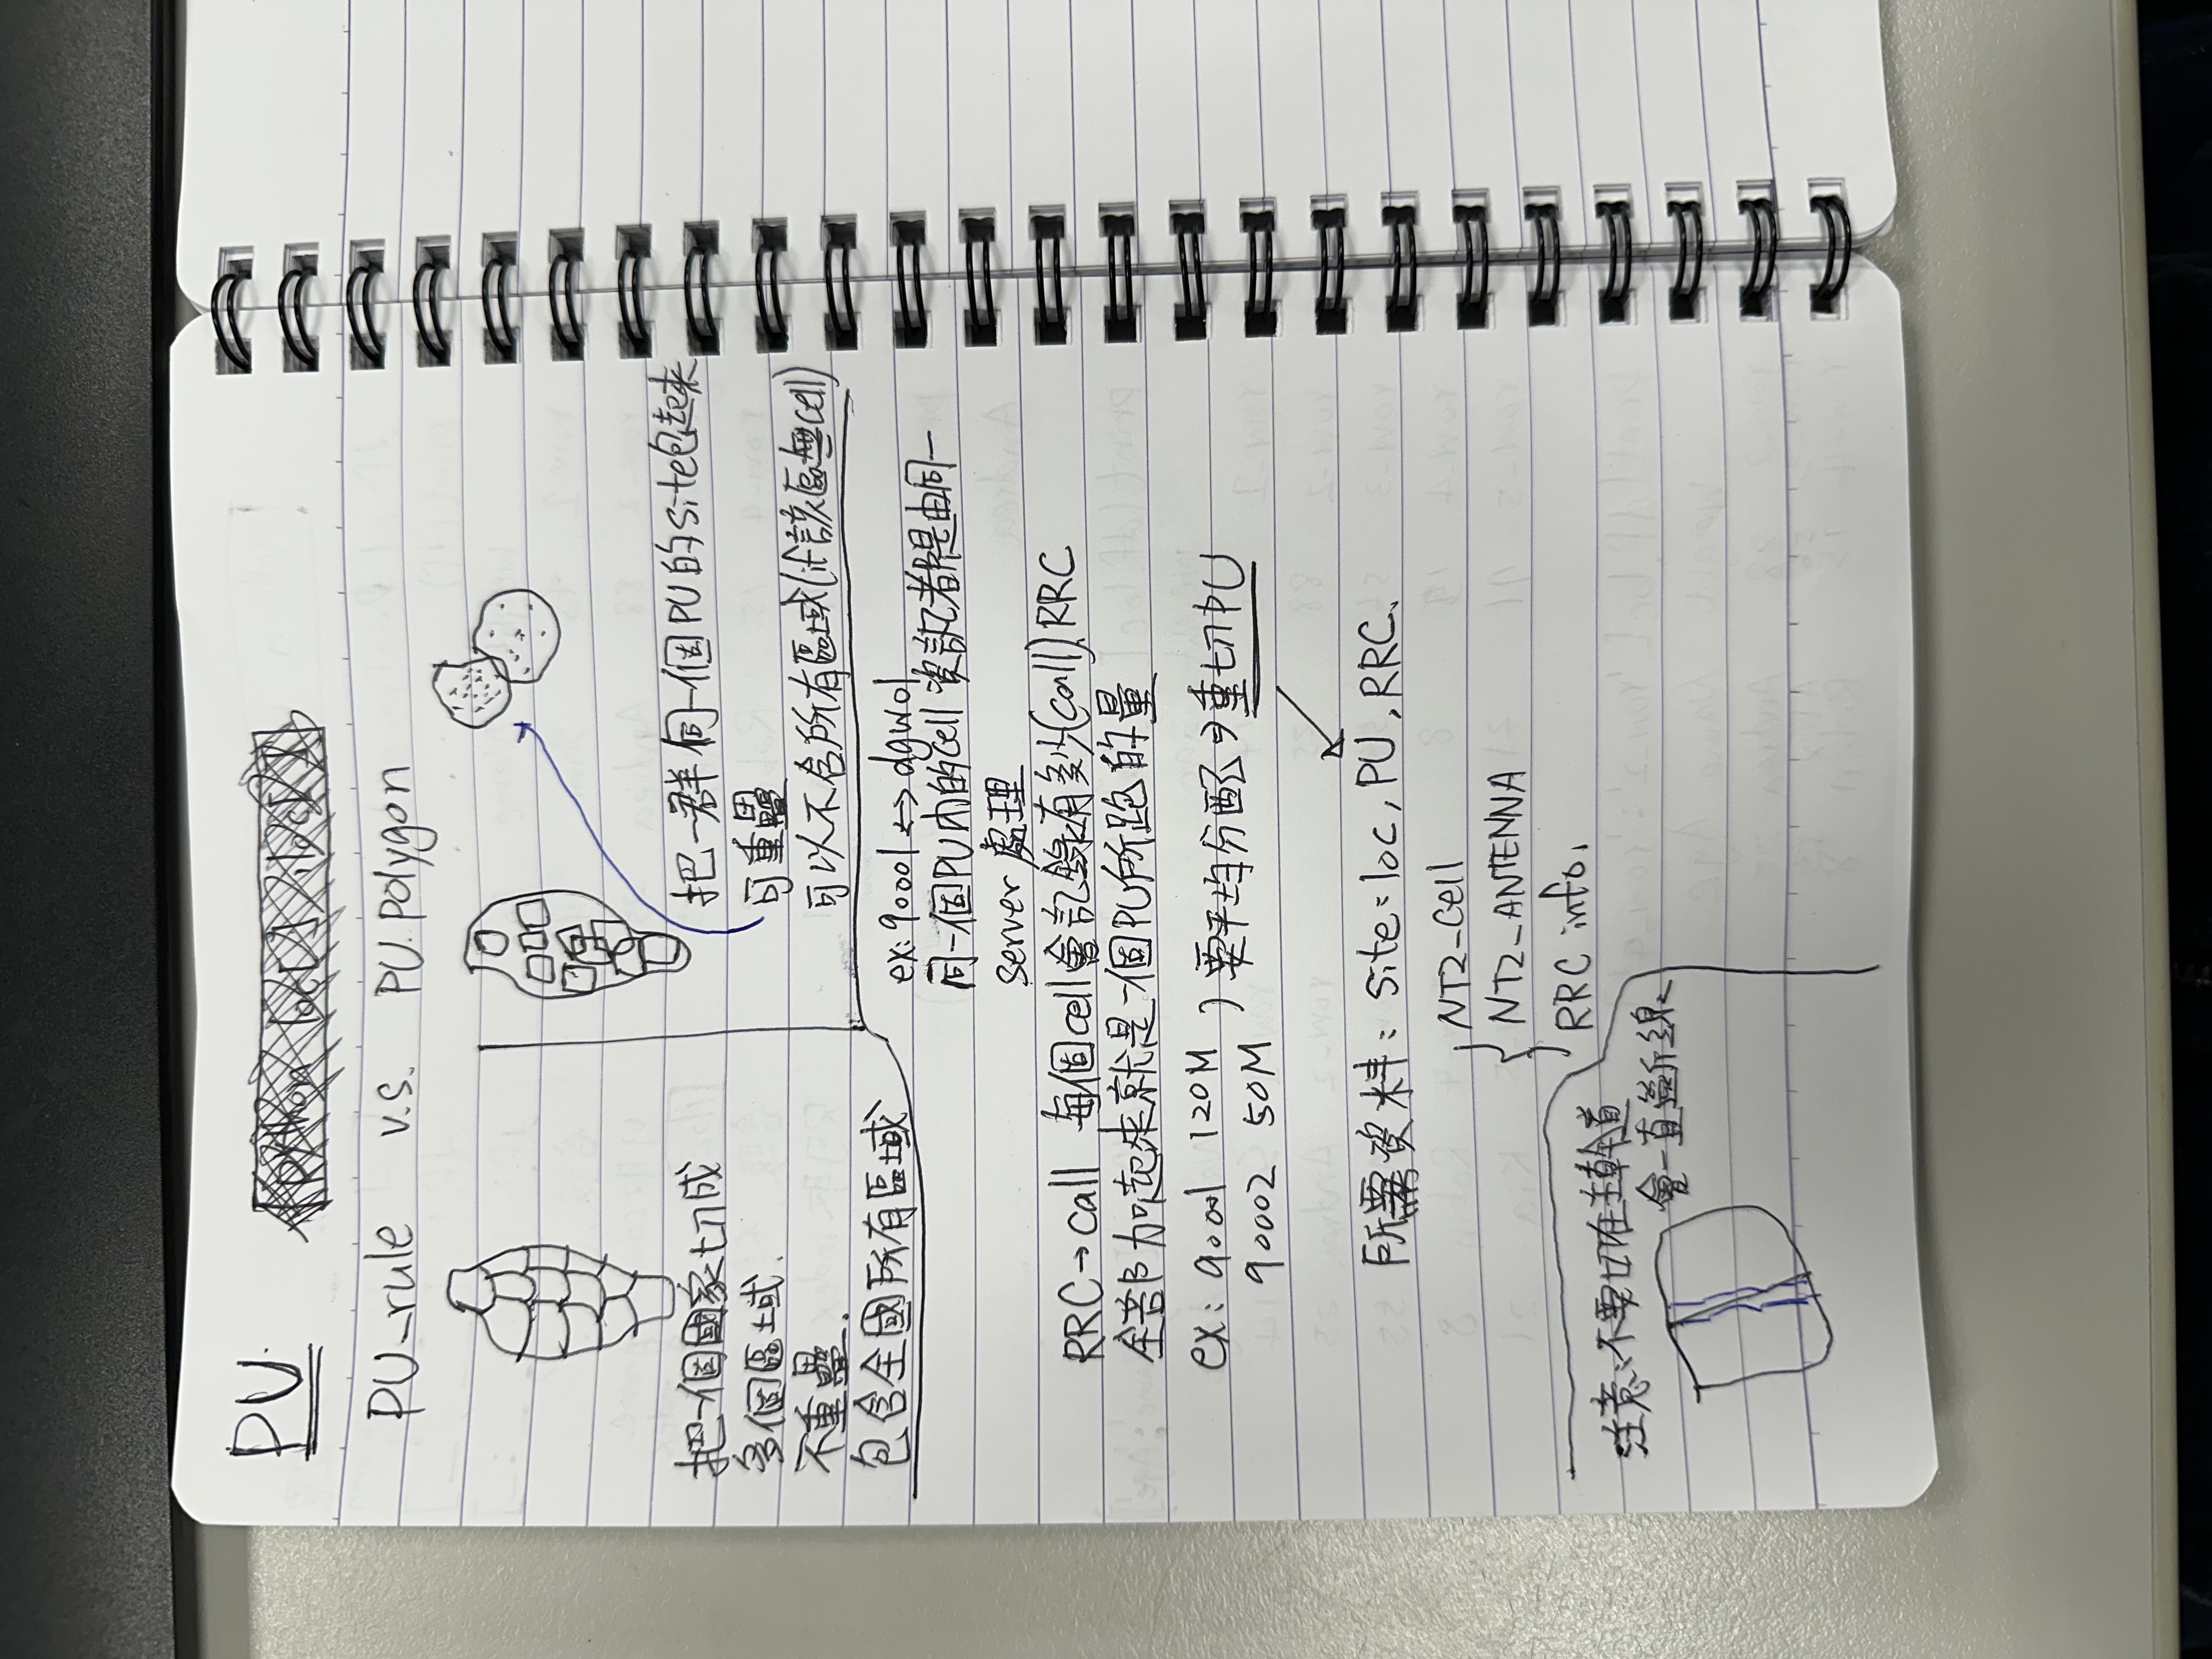 PU.
python loc[] / iloc[]
PU_rule v.s. PU.polygon
把一個國家切成
多個區域.
不重疊.
包含全國所有區域
把一群同一個PU的site包起來
可重疊
可以不含所有區域(if該區無cell)
ex: 90001 ↔ dgw01
同一個PU內的cell資訊都是由同一
server 處理
RRC→call 每個cell會記錄有多少(call).RRC
全部加起來就是一個PU所跑的量
ex: 90001 120M
90002 50M
要平均分配⇒重切PU
所需資料: site=loc, PU, RRC.
NT2_Cell
NT2_ANTENNA
RRC info.
注意:不要切在主幹道
會一直斷線.